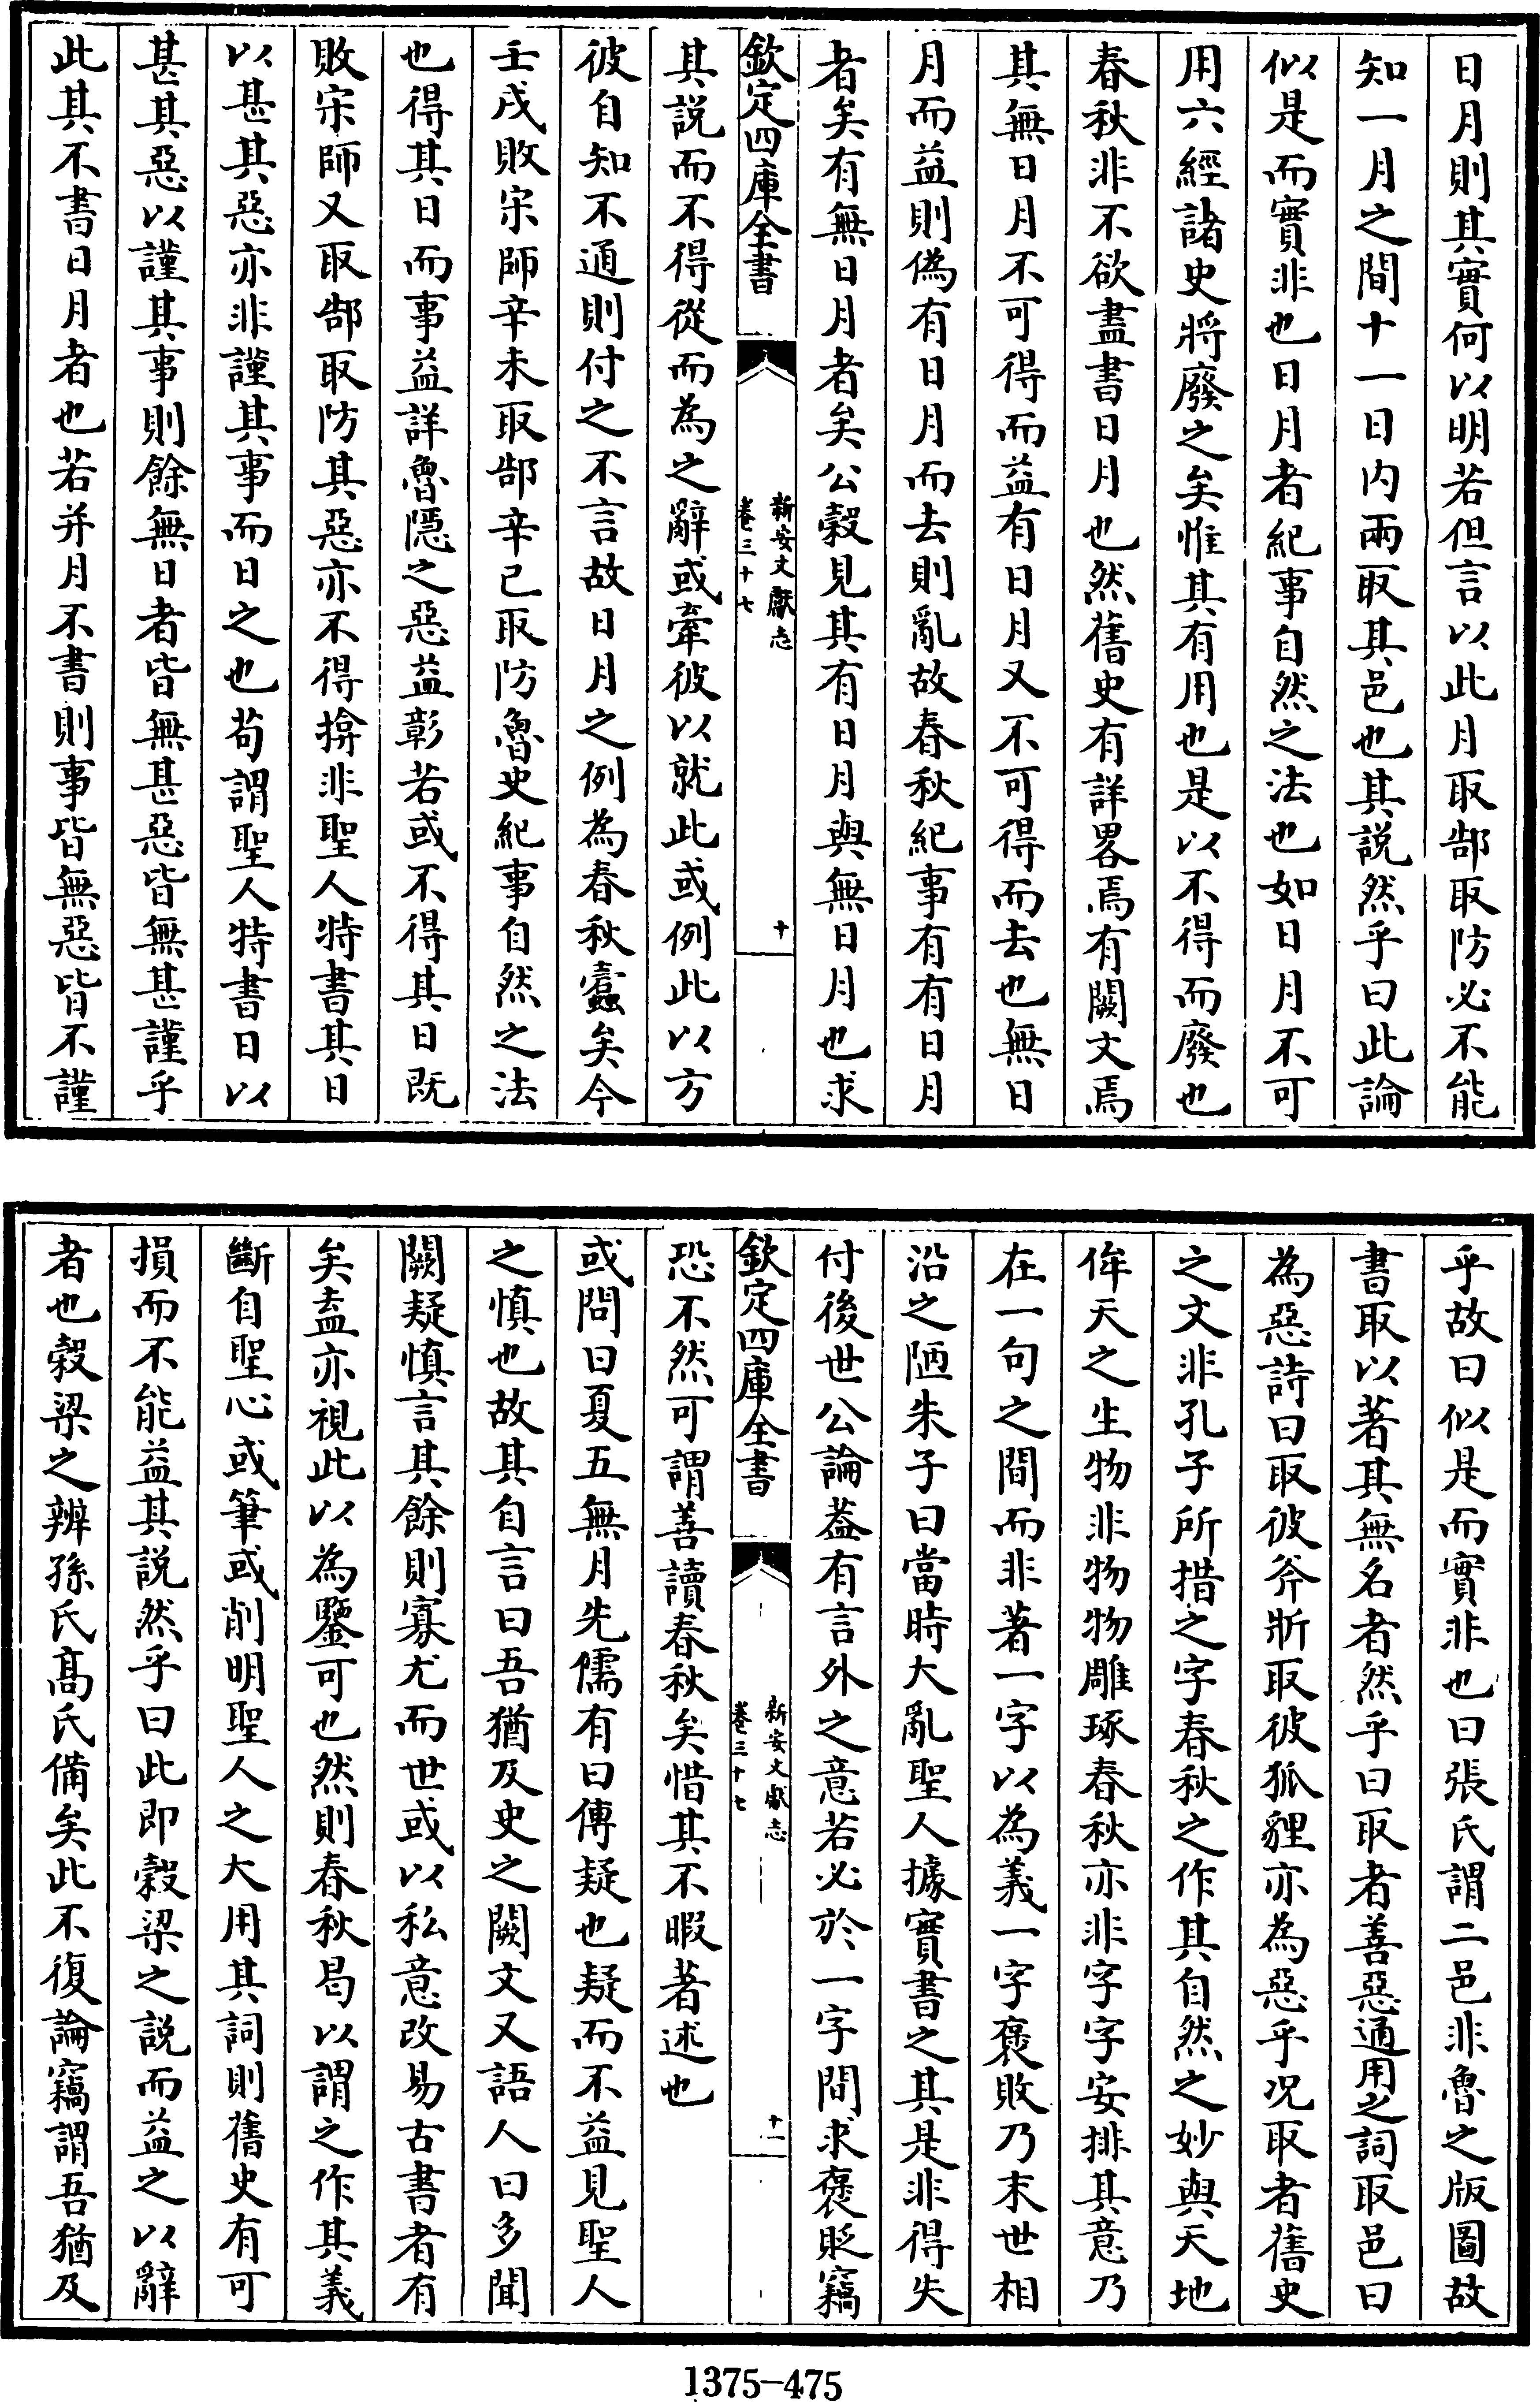 日月則其實何以明若但言以此月取郜取防必不能
知一月之間十一日内兩取其邑也其説然乎曰此論
似是而實非也日月者紀事自然之法也如日月不可
用六經諸史將廢之矣惟其有用也是以不得而廢也
春秋非不欲盡書日月也然舊史有詳畧焉有闕文焉
其無日月不可得而益有日月又不可得而去也無日
月而益則偽有日月而去則亂故春秋紀事有有日月
者矣有無日月者矣公穀見其有日月與無日月也求
欽定四庫全書
新安文獻志
卷三十七
十
其説而不得從而為之辭或牽彼以就此或例此以方
彼自知不通則付之不言故日月之例為春秋蠧矣今
壬戌敗宋師辛未取郜辛已取防魯史紀事自然之法
也得其日而事益詳魯隱之惡益彰若或不得其日既
敗宋師又取郜取防其惡亦不得揜非聖人特書其日
以甚其惡亦非謹其事而日之也苟謂聖人特書日以
甚其惡以謹其事則餘無日者皆無甚惡皆無甚謹乎
此其不書日月者也若并月不書則事皆無惡皆不謹
乎故曰似是而實非也曰張氏謂二邑非魯之版圖故
書取以著其無名者然乎曰取者善惡通用之詞取邑曰
為惡詩曰取彼斧斨取彼狐貍亦為惡乎况取者舊史
之文非孔子所措之字春秋之作其自然之妙與天地
侔天之生物非物物雕琢春秋亦非字字安排其意乃
在一句之間而非著一字以為義一字褒敗乃末世相
沿之陋朱子曰當時大亂聖人據實書之其是非得失
付後世公論葢有言外之意若必於一字間求褒貶竊
欽定四庫全書
新安文獻志
卷三十七
十一
恐不然可謂善讀春秋矣惜其不暇著述也
或問曰夏五無月先儒有曰傳疑也疑而不益見聖人
之慎也故其自言曰吾猶及史之闕文又語人曰多聞
闕疑慎言其餘則寡尤而世或以私意改易古書者有
矣盍亦視此以為鑒可也然則春秋曷以謂之作其義
斷自聖心或筆或削明聖人之大用其詞則舊史有可
損而不能益其説然乎曰此即穀梁之説而益之以辭
者也穀梁之辨孫氏髙氏備矣此不復論竊謂吾猶及
1375-475